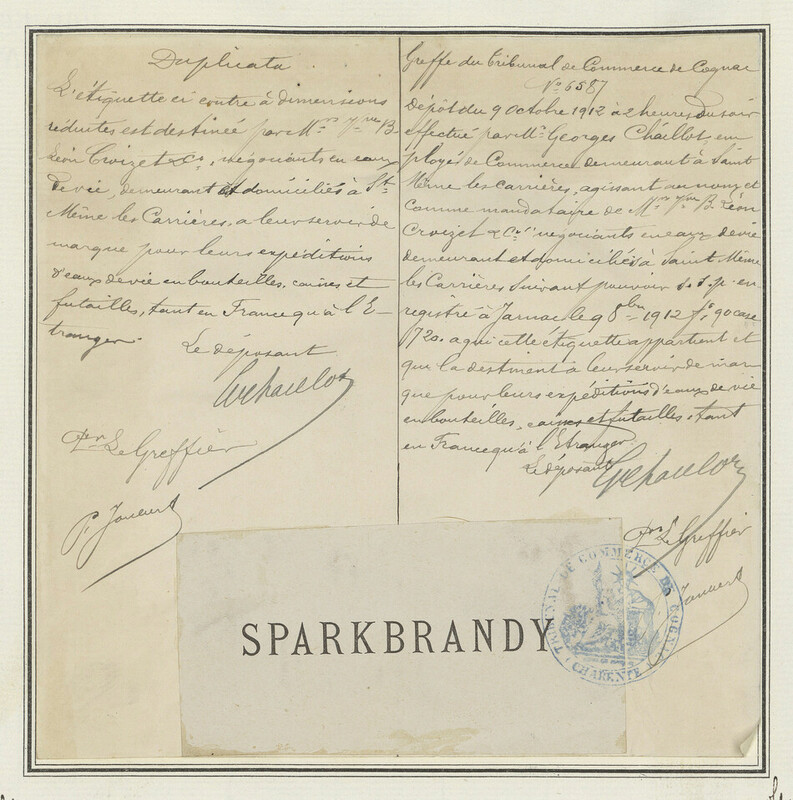 Duplicata
L'étiquette ci contre à dimensions
réduites est destinée par M.rs V.ve B.
Léon Croizet & Cie, négociants en eaux
de vie, demeurant et domiciliés à St
Même les Carrières, a leur servir de
marque pour leurs expéditions
d'eaux de vie en bouteilles, caisses et
futailles, tant en France qu'à l'E-
tranger.
Le déposant
Per Le Greffier
Greffe du tribunal de Commerce de Cognac
No 6587
Dépôt du 9 octobre 1912 à 2 heures du soir
effectué par Mr Georges Chaillot, em
ployé de Commerce demeurant à Saint
Même les carrières, agissant au nom et
comme mandataire de M.rs V.ve B. Léon
Croizet & Cie négociants en eaux de vie
demeurant et domiciliés à Saint Même
les Carrières suivant pouvoir s.s.p. en-
registré à Jarnac le 9 8bre 1912 fo 90 case
720. a qui cette étiquette appartient et
qui la destinent à leur servir de mar
que pour leurs expéditions d'eaux de vie
en bouteilles, caisses et futailles, tant
en France qu'à l'Etranger.
Le déposant
Per Le Greffier
SPARKBRANDY
TRIBUNAL DE COMMERCE DE COGNAC
(CHARENTE)